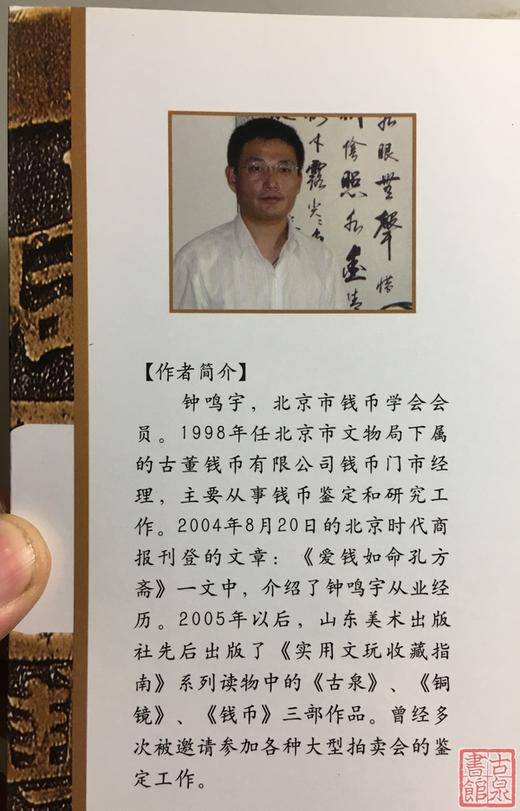 於眼無聲惜一
樹陰照水金清
才露尖尖角
【作者简介】
钟鸣宇，北京市钱币学会会
员。1998年任北京市文物局下属
的古董钱币有限公司钱币门市经
理，主要从事钱币鉴定和研究工
作。2004年8月20日的北京时代商
报刊登的文章：《爱钱如命孔方
斋》一文中，介绍了钟鸣宇从业经
历。2005年以后，山东美术出版
社先后出版了《实用文玩收藏指
南》系列读物中的《古泉》、《铜
镜》、《钱币》三部作品。曾经多
次被邀请参加各种大型拍卖会的鉴
定工作。
古泉
書館